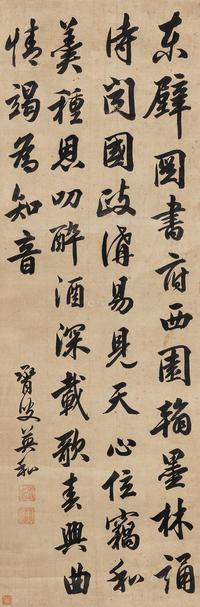 東壁圖書府西園翰墨林誦
詩聞國政講易見天心位竊和
羹種恩叨醉酒深載歌春興曲
情竭為知音
叟英和